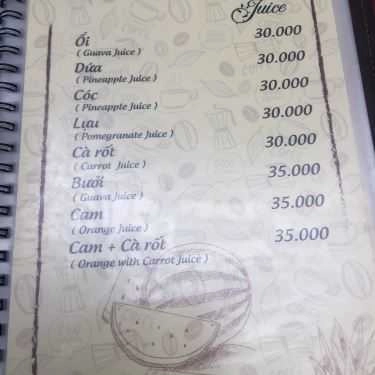 Juice
Ổi 30.000
( Guava Juice )
Dứa 30.000
( Pineapple Juice )
Cóc 30.000
( Pineapple Juice )
Lựu 30.000
(Pomegranate Juice )
Cà rốt 30.000
( Carrot Juice )
Bưởi 35.000
( Guava Juice )
Cam 35.000
( Orange Juice )
Cam + Cà rốt 35.000
( Orange with Carrot Juice )